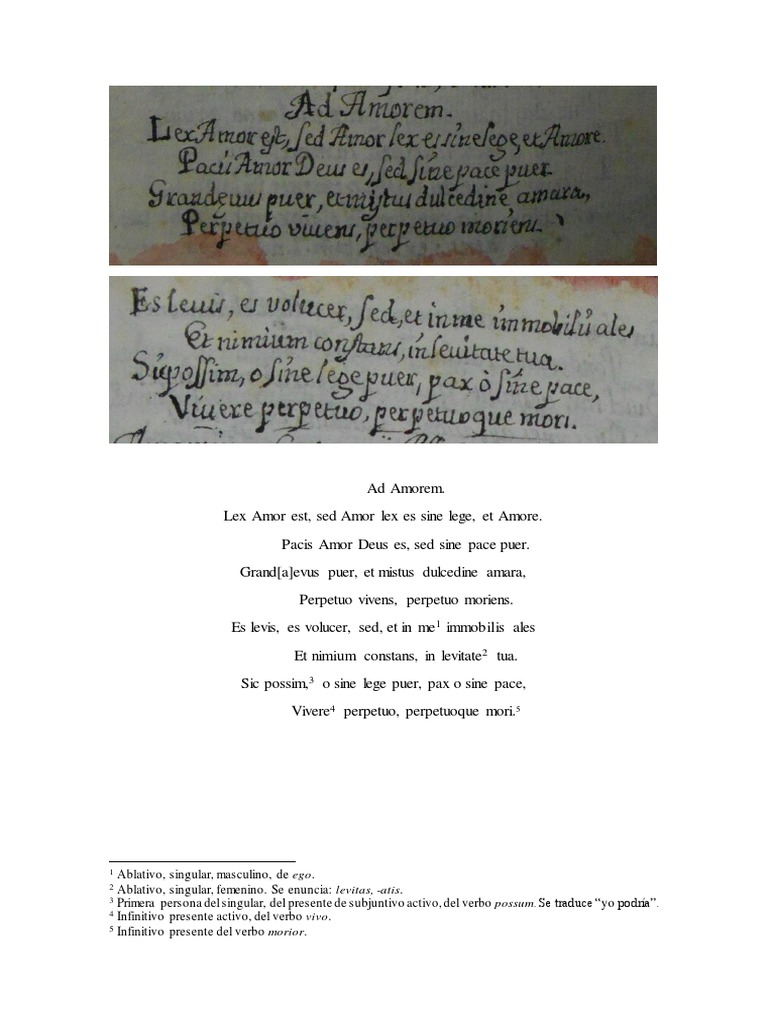 Ad Amorem.
Lex Amor est, sed Amor lex es sine lege, et Amore.
Pacis Amor Deus es, sed sine pace puer.
Grandęvus puer, et mistus dulcedine amara,
Perpetuo vivens, perpetuo moriens.
Es levis, es volucer, sed, et in me immobilis ales
Et nimium constans, in levitate tua.
Sic possim, o sine lege puer, pax ò sine pace,
Vivere perpetuo, perpetuoque mori.
Ad Amorem.
Lex Amor est, sed Amor lex es sine lege, et Amore.
Pacis Amor Deus es, sed sine pace puer.
Grand[a]evus puer, et mistus dulcedine amara,
Perpetuo vivens, perpetuo moriens.
Es levis, es volucer, sed, et in me¹ immobilis ales
Et nimium constans, in levitate² tua.
Sic possim,³ o sine lege puer, pax o sine pace,
Vivere⁴ perpetuo, perpetuoque mori.⁵
¹ Ablativo, singular, masculino, de ego.
² Ablativo, singular, femenino. Se enuncia: levitas, -atis.
³ Primera persona del singular, del presente de subjuntivo activo, del verbo possum. Se traduce “yo podría”.
⁴ Infinitivo presente activo, del verbo vivo.
⁵ Infinitivo presente del verbo morior.